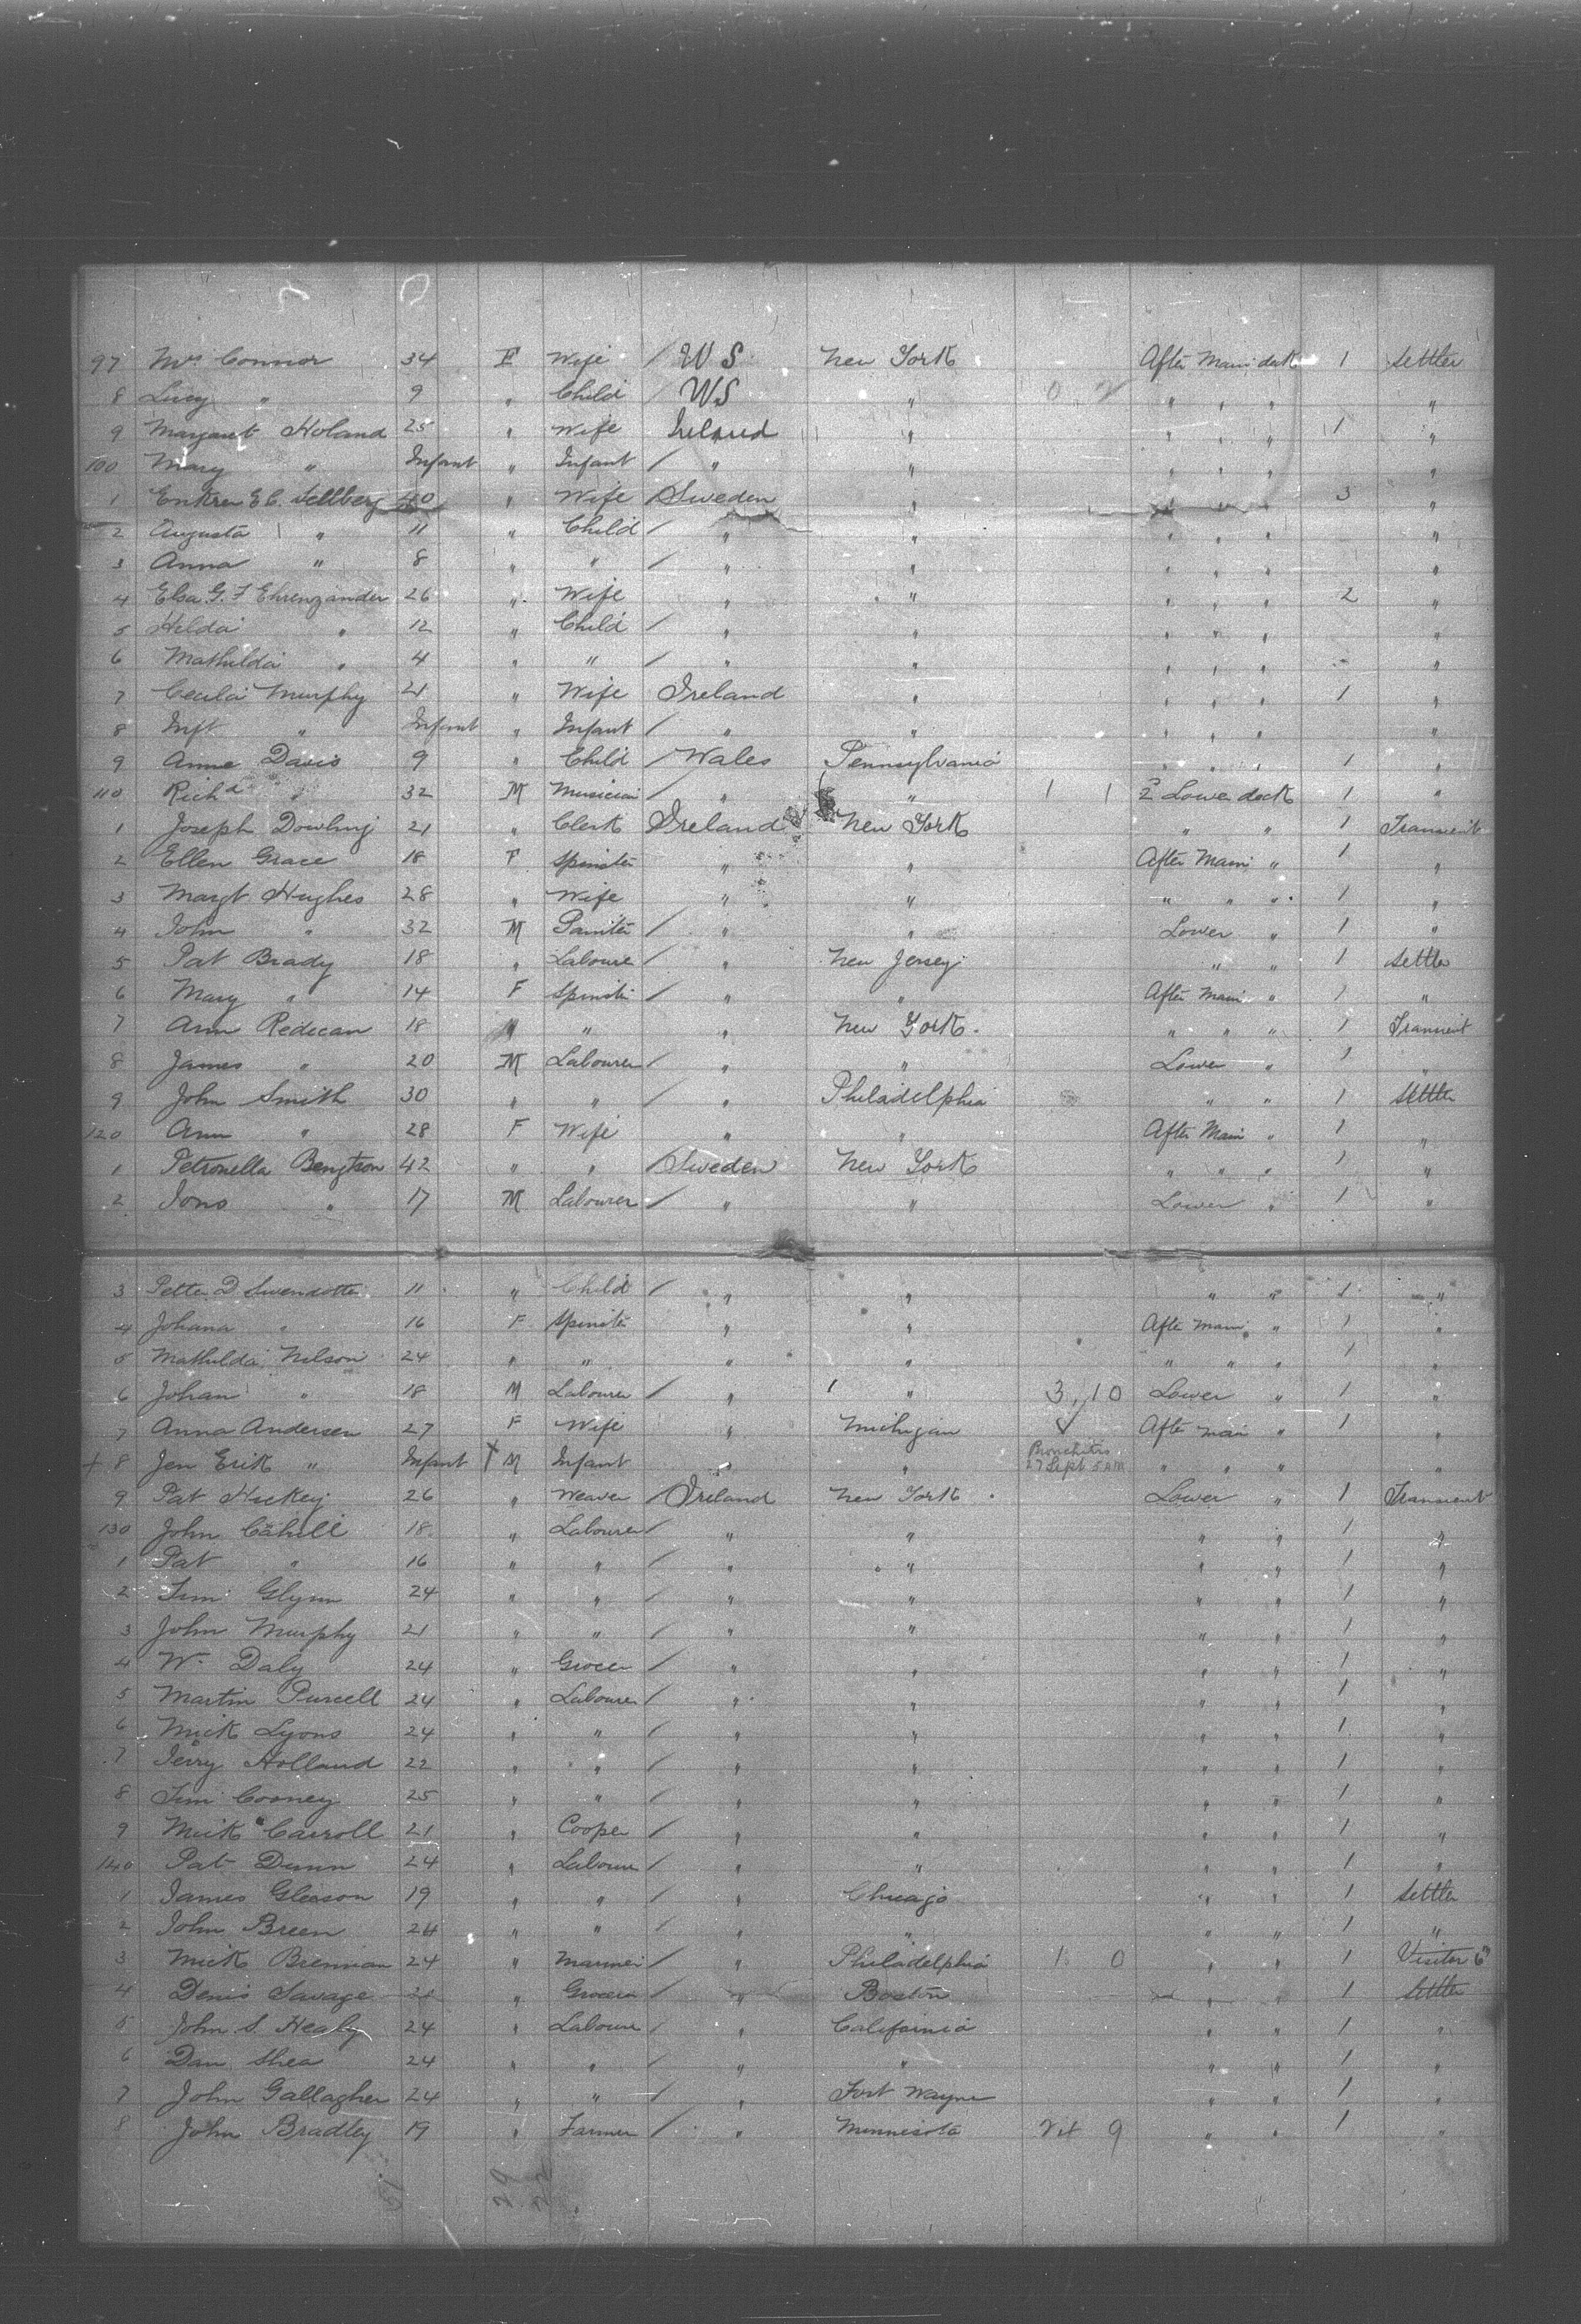 97 Mrs Connor 34 F Wife / U S New York After Main deck 1 Settler
8 Lucy " 9 " Child / U S " 0 2 " " " "
9 Margaret Holand 25 " Wife Ireland " " " " 1 "
100 Mary " Infant " Infant / " " " " " "
1 E. C. Sellberg 40 " Wife / Sweden " " " " 3 "
2 Augusta " 11 " Child / " " " " " "
3 Anna " 8 " " / " " " " " "
4 Elsa G. F Ehrenzander 26 " Wife " " " " " 2 "
5 Hilda " 12 " Child / " " " " " "
6 Mathilda " 4 " " / " " " " " "
7 Cecila Murphy 21 " Wife Ireland " " " " 1 "
8 Inft " Infant " Infant / " " " " " "
9 Anne Davis 9 " Child / Wales Pennsylvania " " " 1 "
110 Richd " 32 M Musician / " " 1 1 2 Lower deck 1 "
1 Joseph Dowling 21 " Clerk Ireland New York " " 1 Transient
2 Ellen Grace 18 F Spinster " " After Main " 1 "
3 Margt Hughes 28 " Wife " " " " " 1 "
4 John " 32 M Painter / " " Lower " 1 "
5 Pat Brady 18 " Labourer / " New Jersey " " 1 Settler
6 Mary " 14 F Spinster / " " After Main " 1 "
7 Ann Redican 18 " " " New York. " " " 1 Transient
8 James " 20 M Labourer / " " Lower " 1 "
9 John Smith 30 " " / " Philadelphia " " 1 Settler
120 Ann " 28 F Wife " " After Main " 1 "
1 Petronella Bengtson 42 " " / Sweden New York " " " 1 "
2 Jons " 17 M Labourer / " " Lower " 1 "
3 Petter D Swendotter 11 " Child / " " " " 1 "
4 Johana " 16 F Spinster " " After Main " 1 "
5 Mathilda Nilson 24 " " " " " " " 1 "
6 Johan " 18 M Labourer / " " 3 10 Lower " 1 "
7 Anna Andersen 27 F Wife " Michigan After Main " 1 "
+ 8 Jen Erik " Infant + M Infant " " Bronchitis 27 Sept 5 AM " " " "
9 Pat Hickey 26 " Weaver / Ireland New York Lower " 1 Transient
130 John Cahill 18 " Labourer / " " " " 1 "
1 Pat " 16 " " / " " " " 1 "
2 Tim Glynn 24 " " / " " " " 1 "
3 John Murphy 21 " " / " " " " 1 "
4 W. Daly 24 " Grocer / " " " " 1 "
5 Martin Purcell 24 " Labourer / " " " " 1 "
6 Mick Lyons 24 " " / " " " " 1 "
7 Jerry Holland 22 " " / " " " " 1 "
8 Tim Cooney 25 " " / " " " " 1 "
9 Mick Carroll 21 " Cooper / " " " " 1 "
140 Pat Dunn 24 " Labourer / " " " " 1 "
1 James Gleeson 19 " " / " Chicago " " 1 Settler
2 John Breen 24 " " / " " " " 1 "
3 Mick Brennan 24 " Mariner / " Philadelphia 1 0 " " 1 Visitor
4 Denis Savage " Grocer / " Boston " " 1 Settler
5 John S. Healy 24 " Labourer / " California " " 1 "
6 Dan Shea 24 " " / " " " " 1 "
7 John Gallagher 24 " " / " Fort Wayne " " 1 "
8 John Bradley 19 " Farmer / " Minnesota 9 " " 1 "